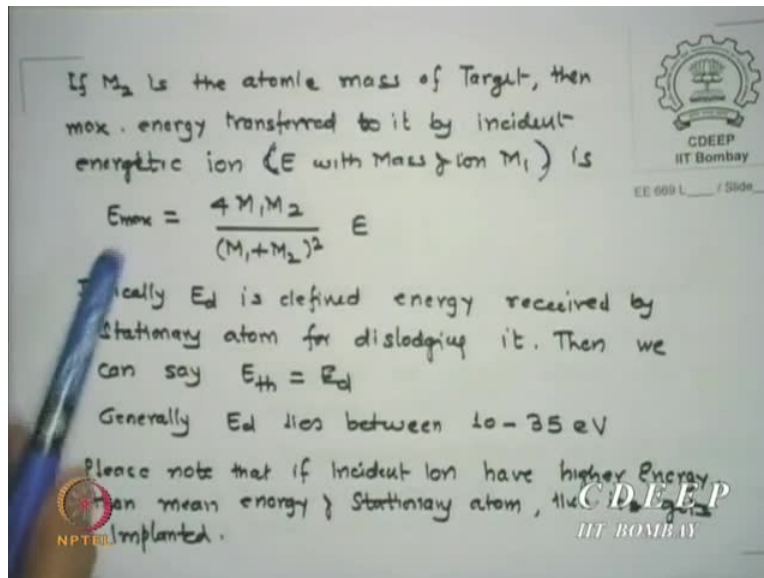 If M₂ is the atomic mass of Target, then
max. energy transferred to it by incident
energetic ion (E with Mass of ion M₁) is
Emax = 4 M₁M₂ / (M₁+M₂)² E
Ed is defined energy received by
Stationary atom for dislodging it. Then we
can say Eth = Ed
Generally Ed lies between 10 - 35 eV
Please note that if Incident Ion have higher Energy
mean energy of Stationary atom,
Implanted.
CDEEP
IIT Bombay
EE 669 L____ / Slide__
NPTEL
CDEEP
IIT BOMBAY